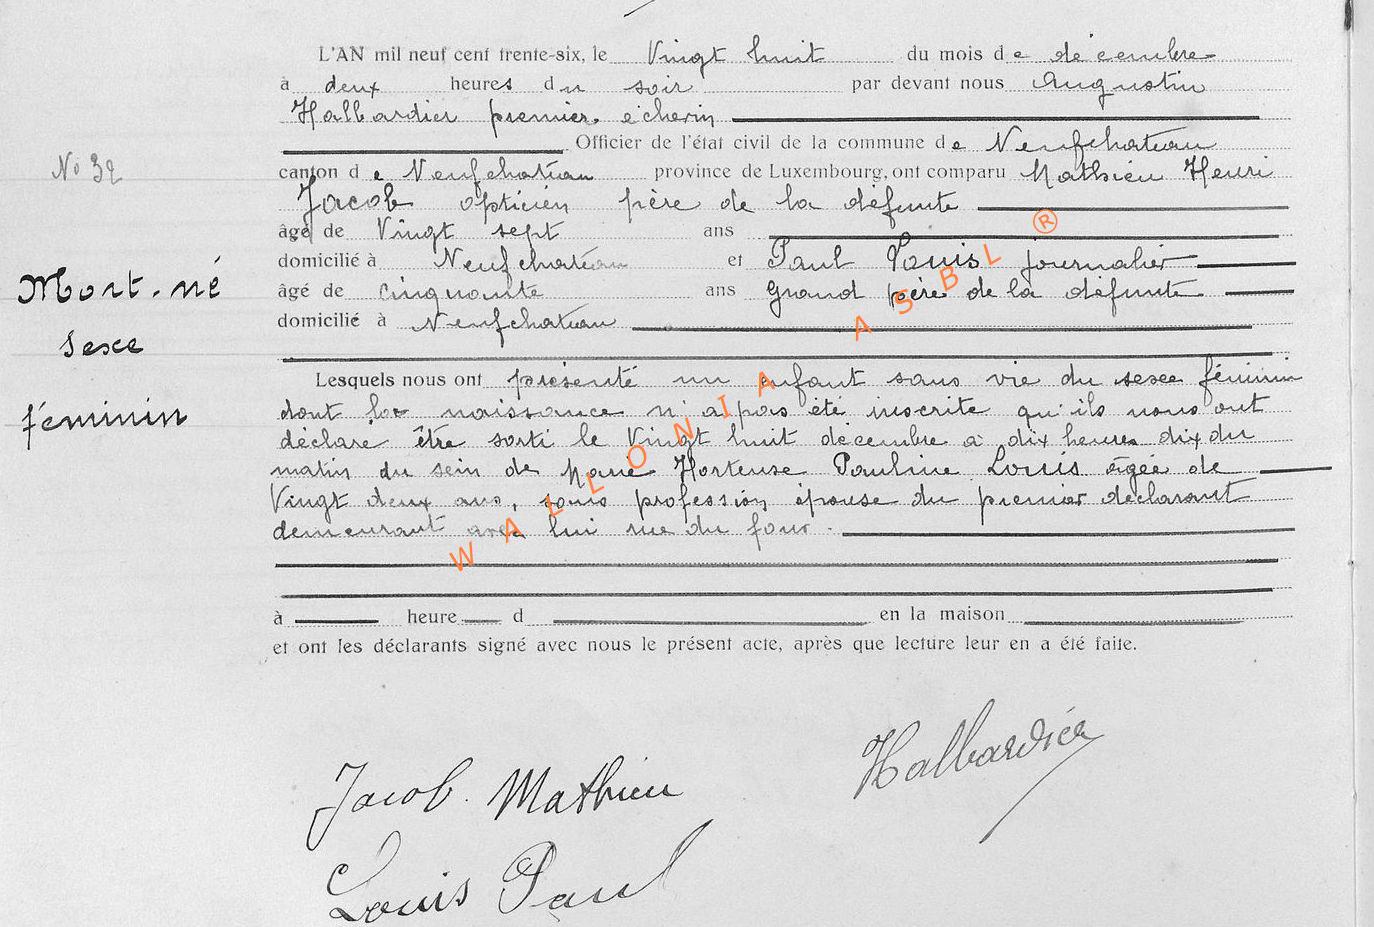 L'AN mil neuf cent trente-six, le Vingt huit du mois de décembre
à deux heures du soir par devant nous Augustin
Halbardier premier échevin
Officier de l'état civil de la commune de Neufchateau
No 32
canton de Neufchateau province de Luxembourg, ont comparu Mathieu Henri
Jacob opticien père de la défunte
âgé de Vingt sept ans
domicilié à Neufchateau et Paul Louis journalier
Mort-né
âgé de cinquante ans Grand père de la défunte
domicilié à Neufchateau
sexe
Lesquels nous ont présenté un enfant sans vie du sexe féminin
féminin
dont la naissance n'a pas été inscrite qu'ils nous ont
déclaré être sorti le Vingt huit décembre à dix heures dix du
matin du sein de Marie Hortense Pauline Louis âgée de
Vingt deux ans, sans profession, épouse du premier déclarant
demeurant avec lui rue du four.
à heure d en la maison
et ont les déclarants signé avec nous le présent acte, après que lecture leur en a été faite.
Halbardier
Jacob Mathieu
Louis Paul
WALLONIA ASBL ®